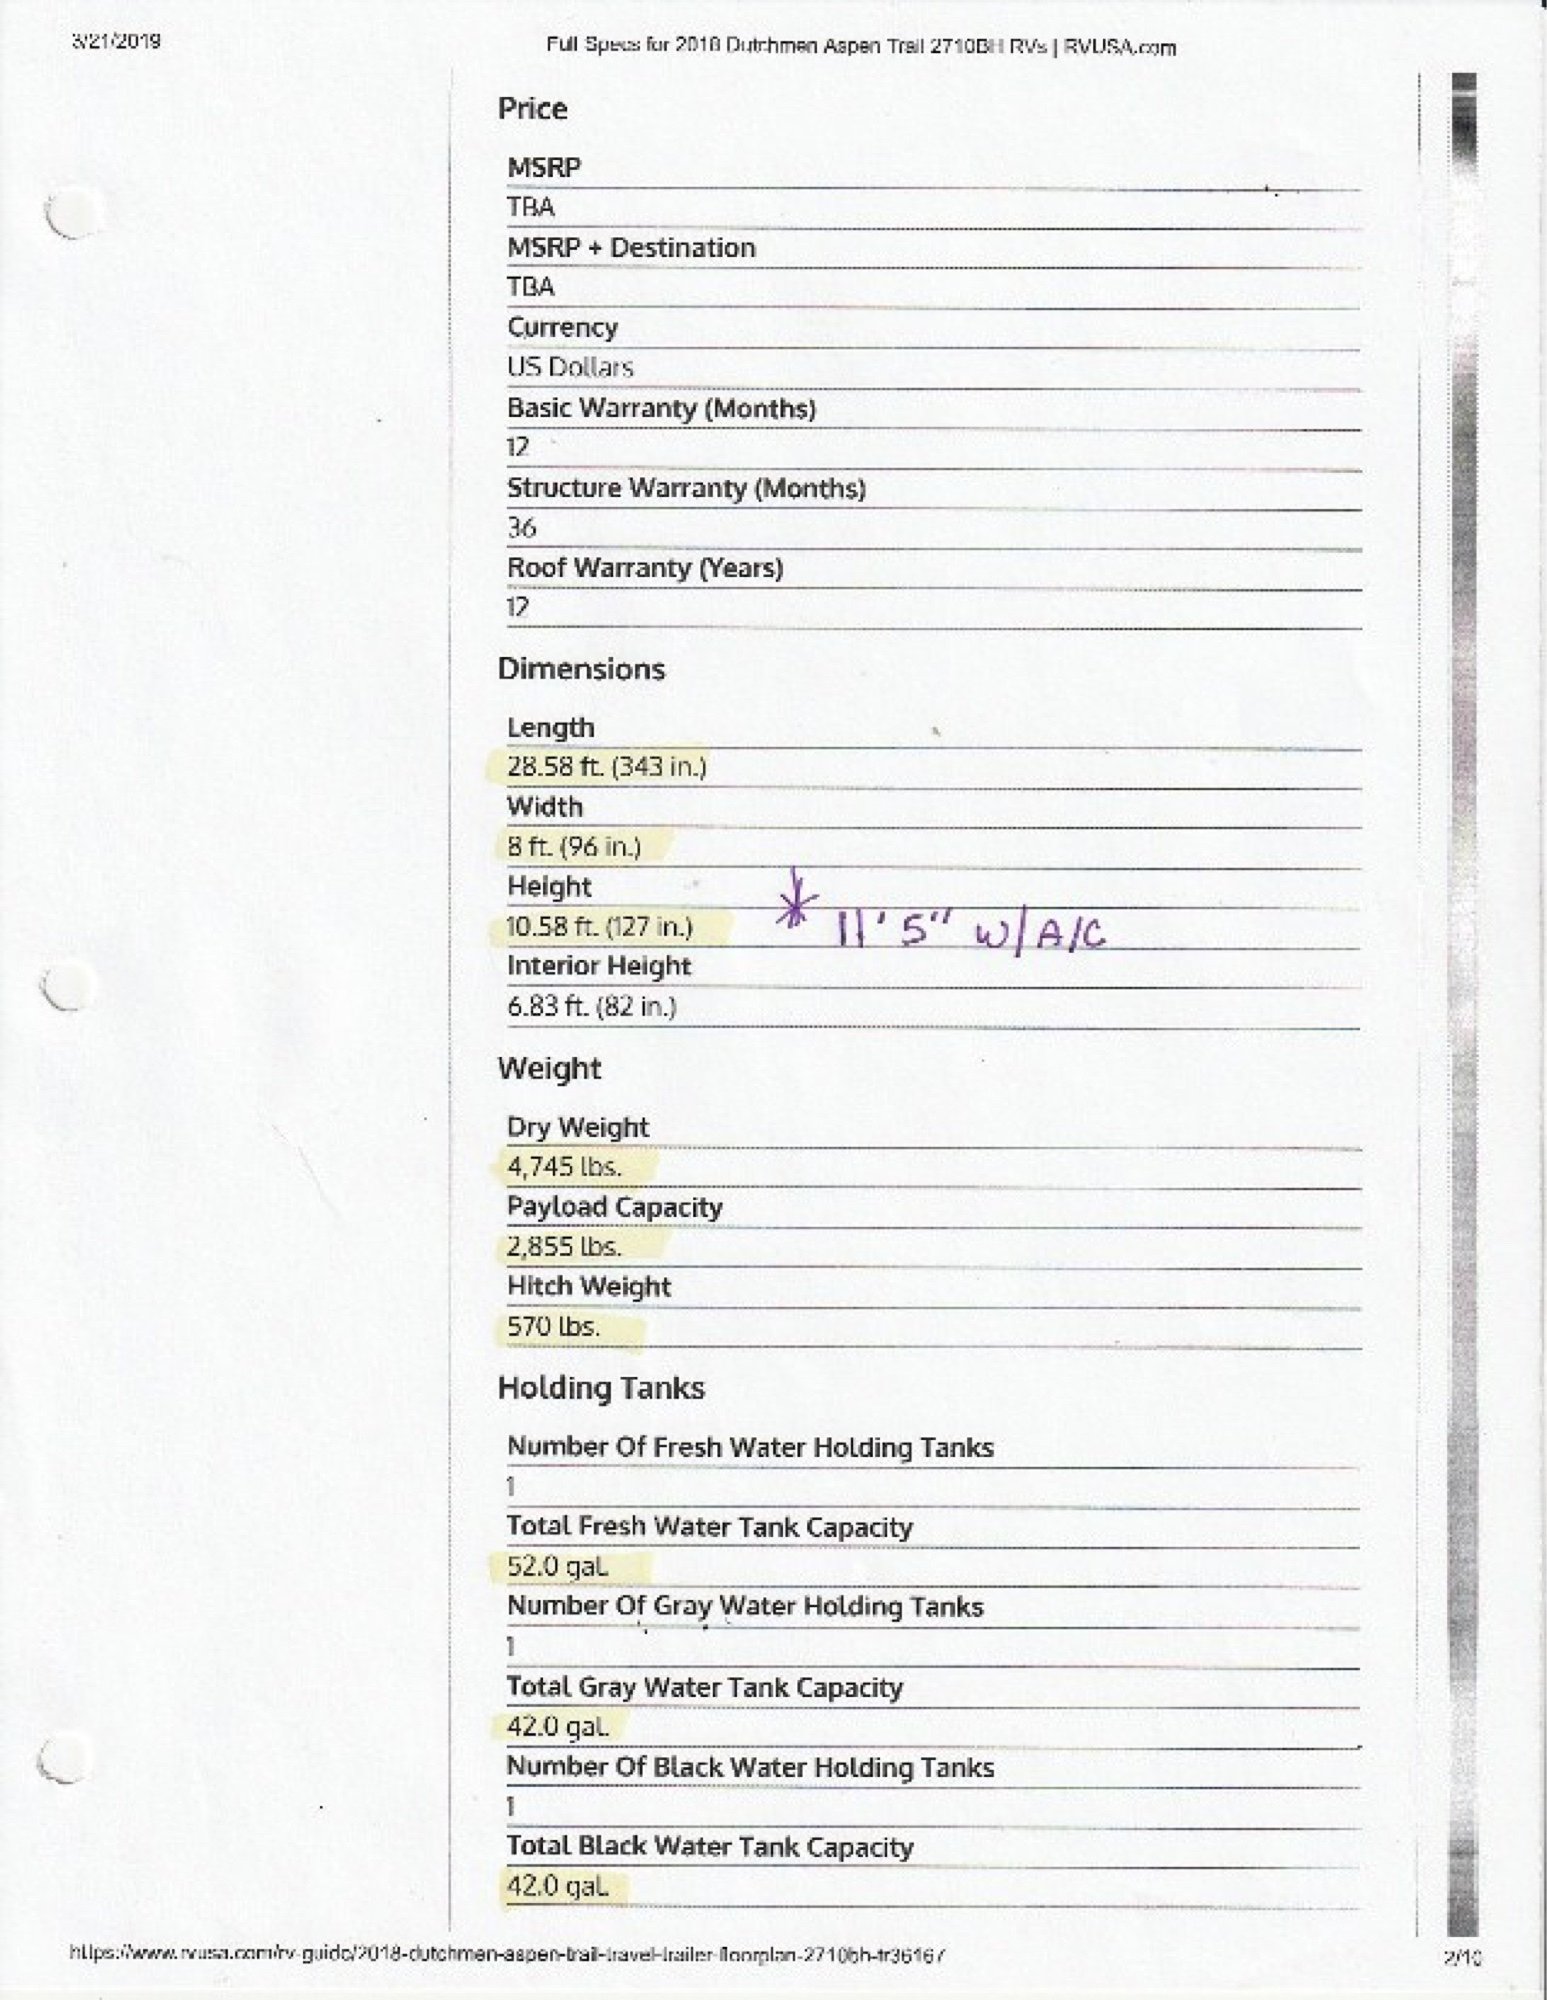 3/21/2019
Full Specs for 2018 Dutchmen Aspen Trail 2710BH RVs | RVUSA.com
Price
MSRP
TBA
MSRP + Destination
TBA
Currency
US Dollars
Basic Warranty (Months)
12
Structure Warranty (Months)
36
Roof Warranty (Years)
12
Dimensions
Length
28.58 ft. (343 in.)
Width
8 ft. (96 in.)
Height
10.58 ft. (127 in.) * 11' 5" w/A/C
Interior Height
6.83 ft. (82 in.)
Weight
Dry Weight
4,745 lbs.
Payload Capacity
2,855 lbs.
Hitch Weight
570 lbs.
Holding Tanks
Number Of Fresh Water Holding Tanks
1
Total Fresh Water Tank Capacity
52.0 gal.
Number Of Gray Water Holding Tanks
1
Total Gray Water Tank Capacity
42.0 gal.
Number Of Black Water Holding Tanks
1
Total Black Water Tank Capacity
42.0 gal.
https://www.rvusa.com/rv-guide/2018-dutchmen-aspen-trail-travel-trailer-floorplan-2710bh-tr36167
2/10